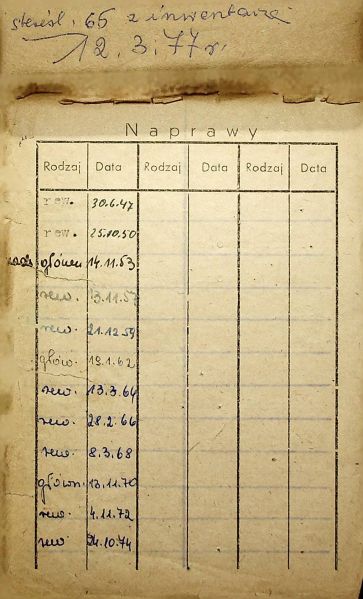 z inwentarza
12.3.77 r.
Naprawy
Rodzaj Data Rodzaj Data Rodzaj Data
rew. 30.6.47
rew. 25.10.50
główn 14.11.53
rew. 13.11.57
rew. 21.12.59
głów. 19.1.62
rew. 13.3.64
rew. 28.2.66
rew. 8.3.68
główn. 13.11.70
rew. 4.11.72
rew. 24.10.74